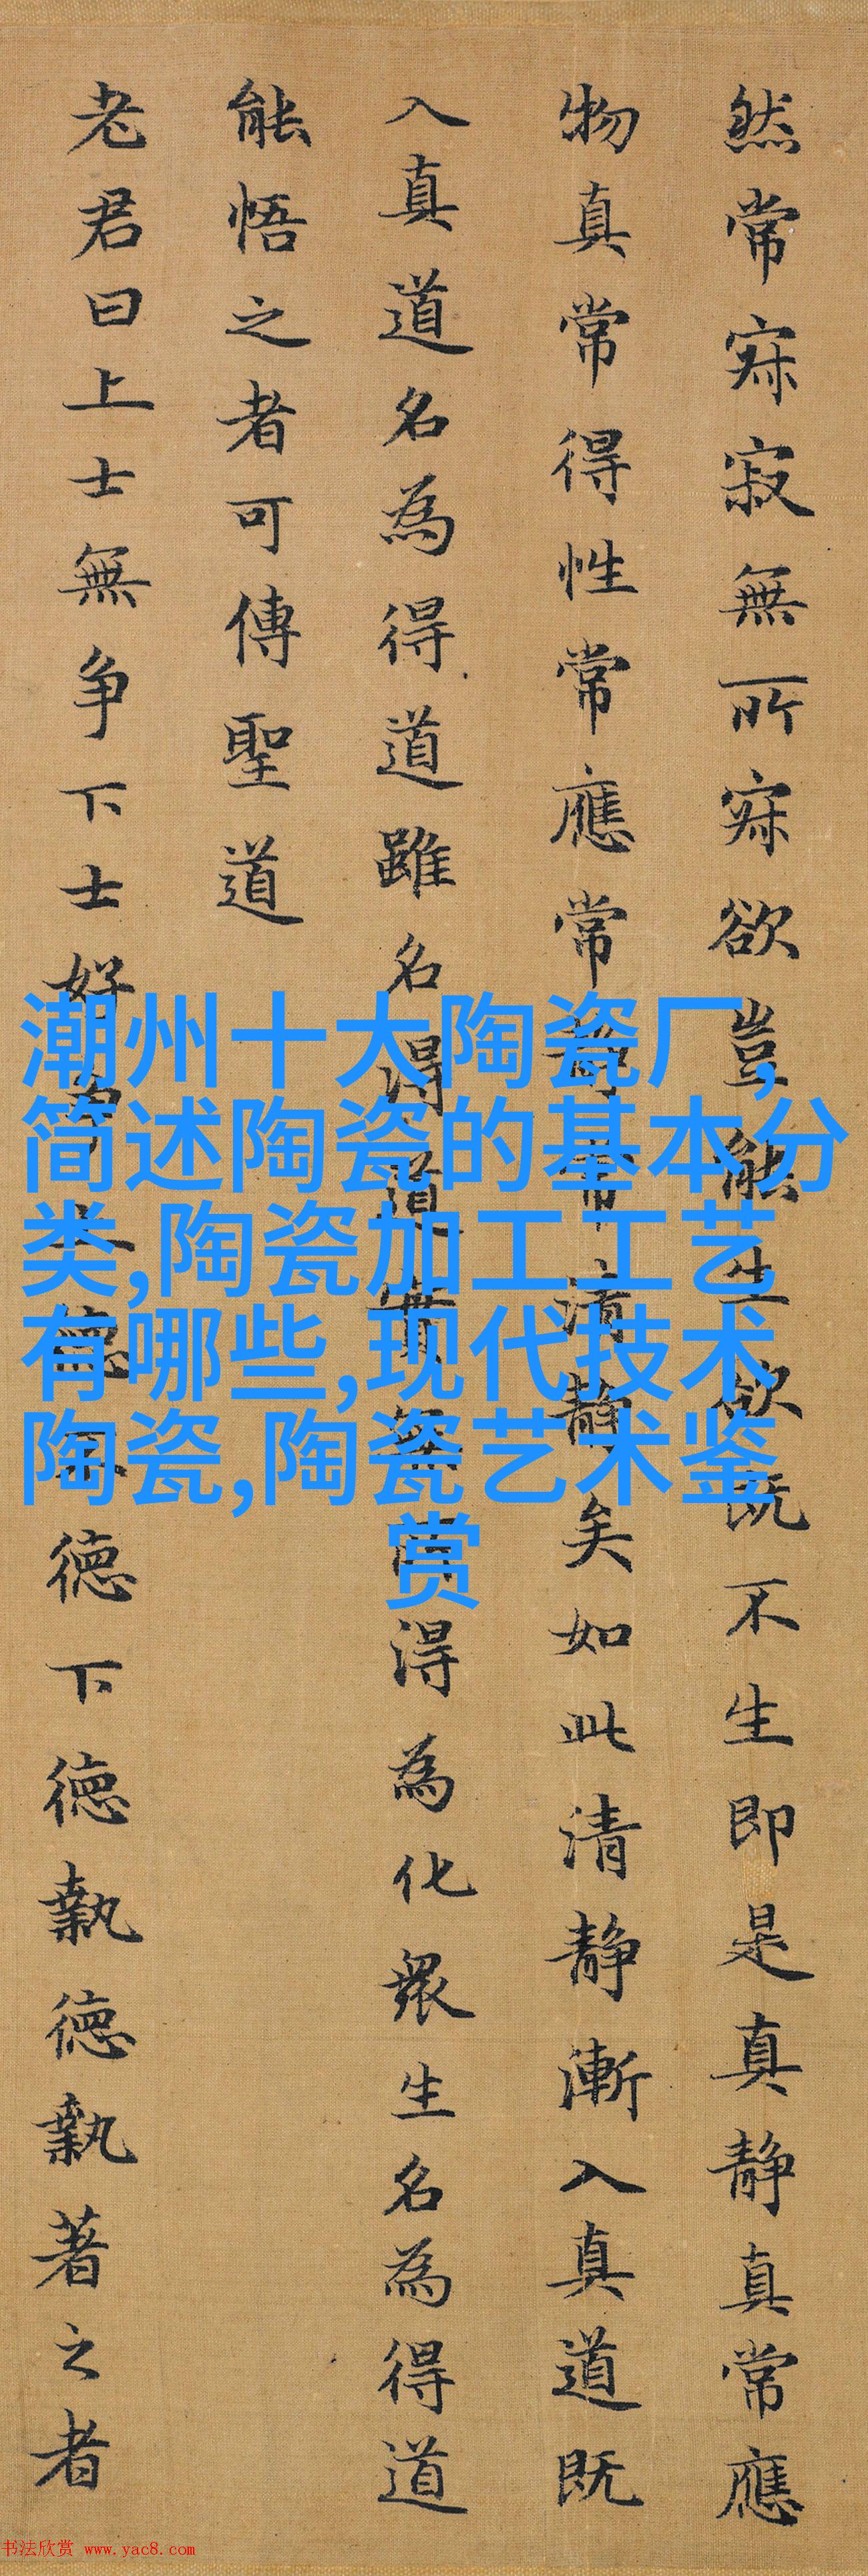 然常寂寂無所寂欲豈能生欲既不生即是真静真常應
物真常得性常應常静常清静矣如此清静漸入真道既
入真道名為得道雖名得道實無所得為化衆生名為得道
能悟之者可傳聖道
老君曰上士無争下士好争上德不德下德執德執著之者
潮州十大陶瓷厂,
简述陶瓷的基本分
类,陶瓷加工工艺
有哪些,现代技术
陶瓷,陶瓷艺术鉴
赏
书法欣赏 www.yac8.com